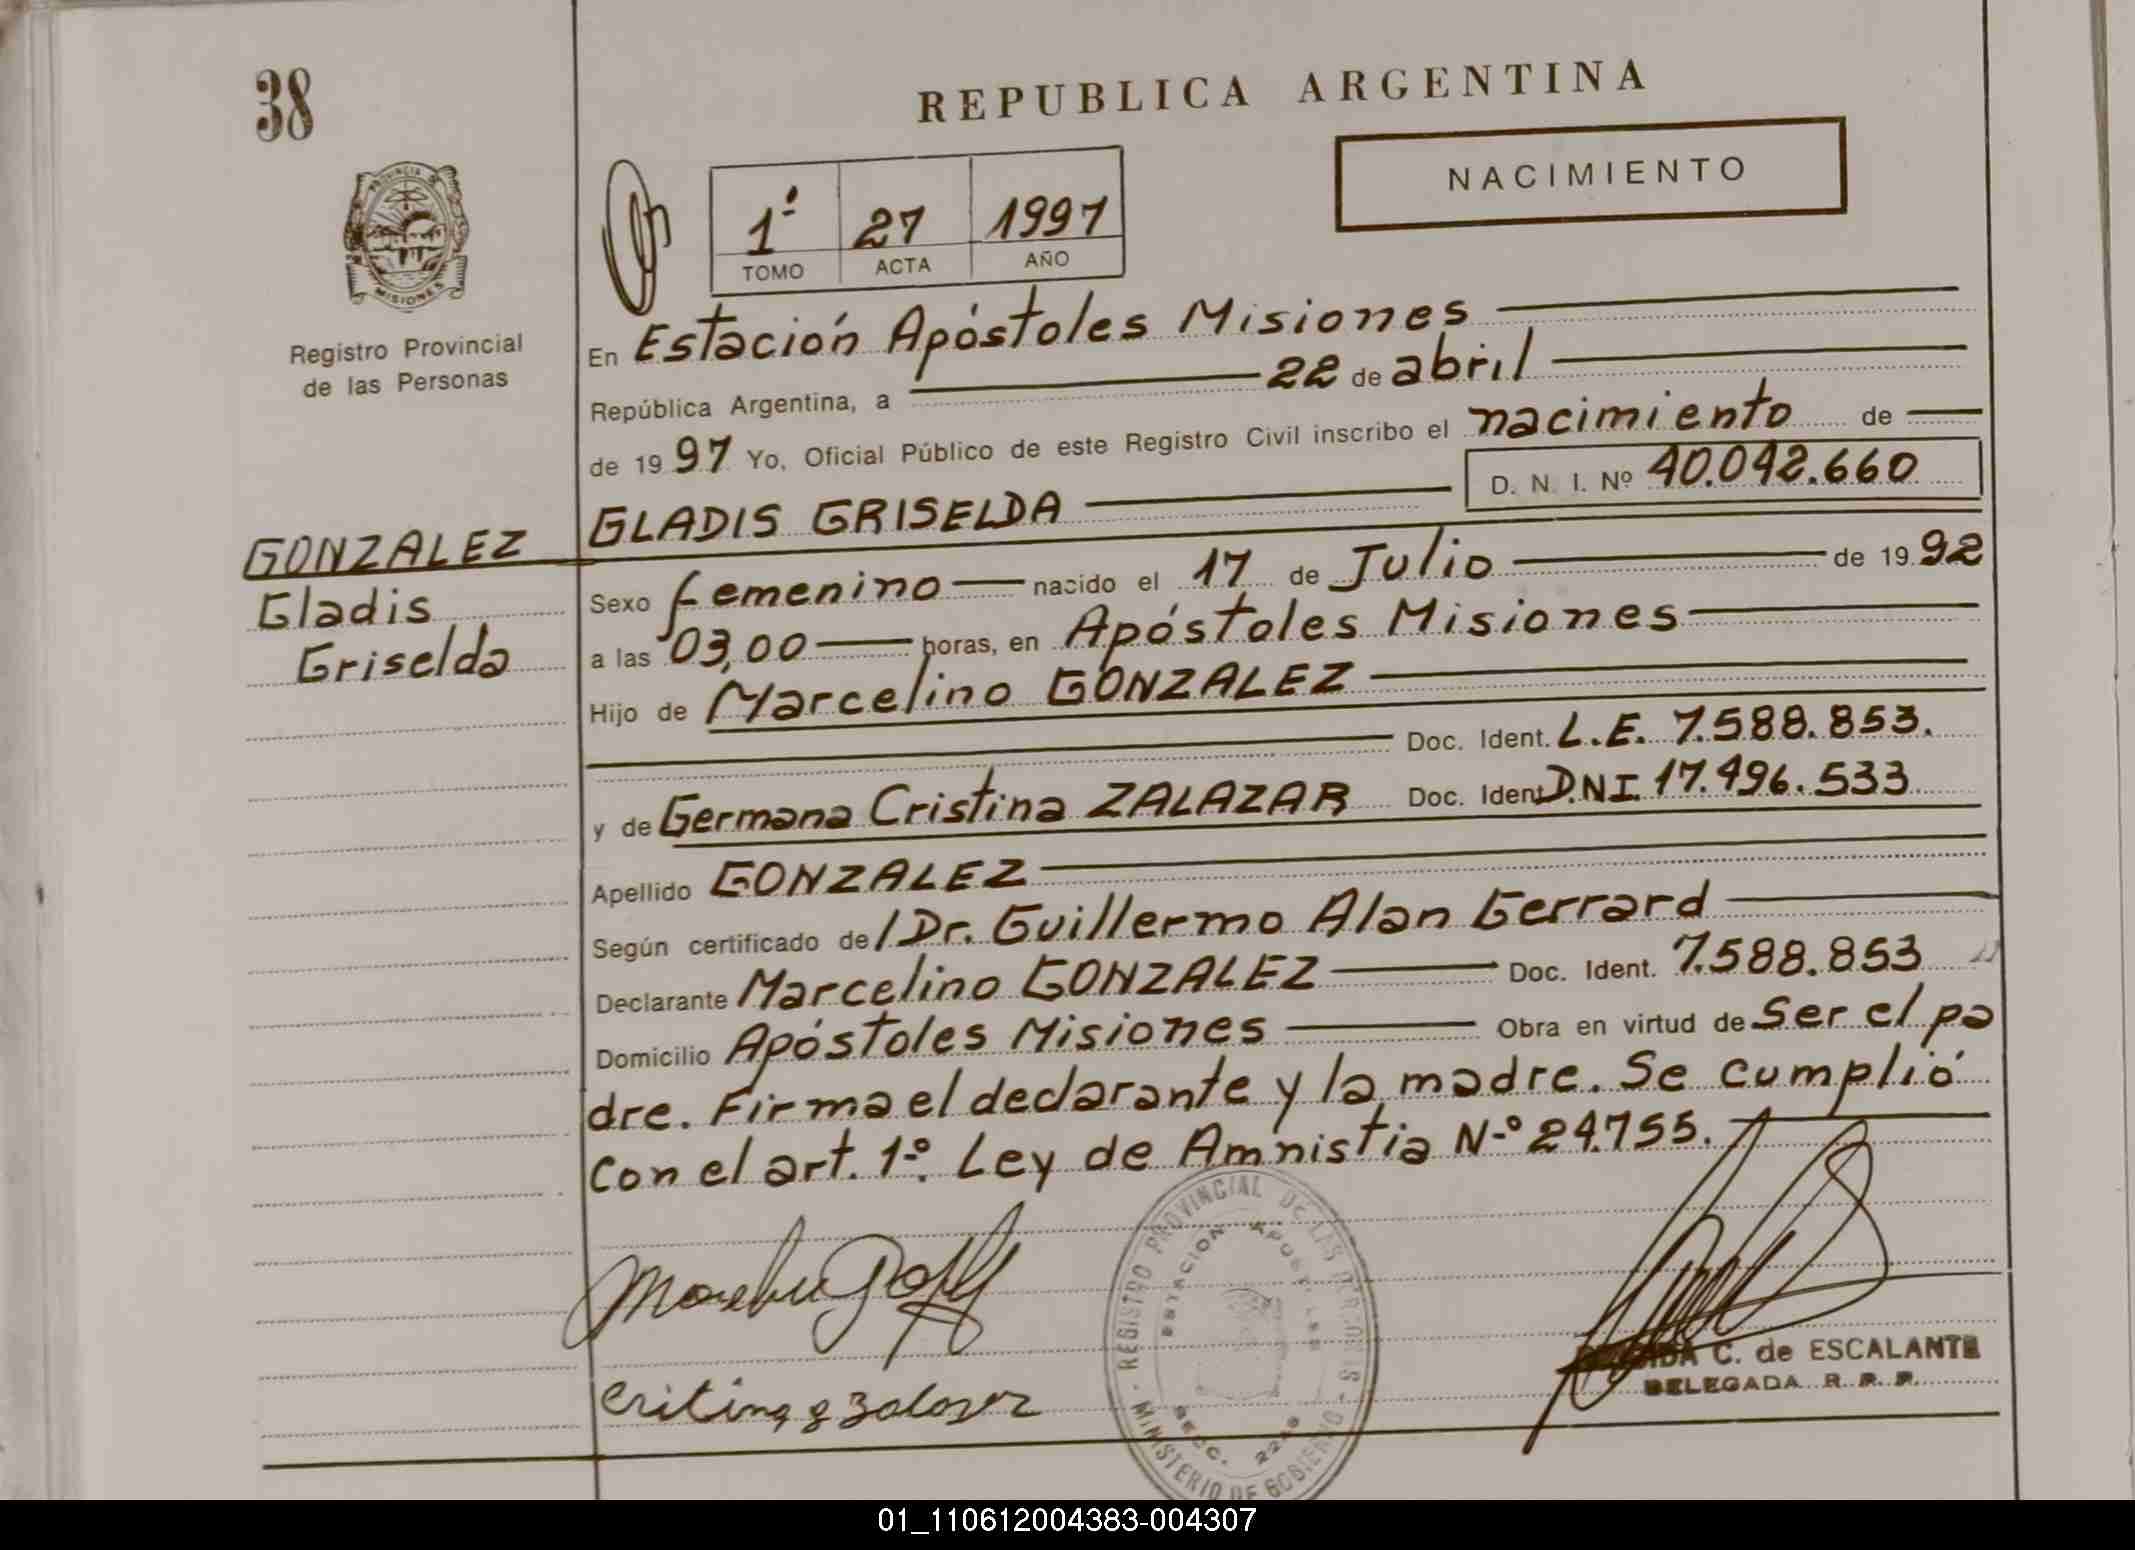 38
REPUBLICA ARGENTINA
NACIMIENTO
PROVINCIA DE
MISIONES
1º 27 1997
TOMO ACTA AÑO
Registro Provincial
de las Personas
En Estación Apóstoles Misiones
República Argentina, a 22 de abril
de 1997 Yo, Oficial Público de este Registro Civil inscribo el nacimiento de
D. N. I. Nº 40.042.660
GLADIS GRISELDA
GONZALEZ
Gladis
Griselda
Sexo femenino nacido el 17 de Julio de 1992
a las 03,00 horas, en Apóstoles Misiones
Hijo de Marcelino GONZALEZ
Doc. Ident. L.E. 7.588.853.
y de Germana Cristina ZALAZAR Doc. Ident D.N.I. 17.496.533
Apellido GONZALEZ
Según certificado de / Dr. Guillermo Alan Gerrard
Declarante Marcelino GONZALEZ Doc. Ident. 7.588.853
Domicilio Apóstoles Misiones Obra en virtud de Ser el pa
dre. Firma el declarante y la madre. Se cumplió
Con el art. 1º. Ley de Amnistia Nº 24.755.
REGISTRO PROVINCIAL DE LAS PERSONAS - MINISTERIO DE GOBIERNO -
ESTACION APOSTOLES
SECC.
C. de ESCALANTE
DELEGADA R. P. P.
01_110612004383-004307